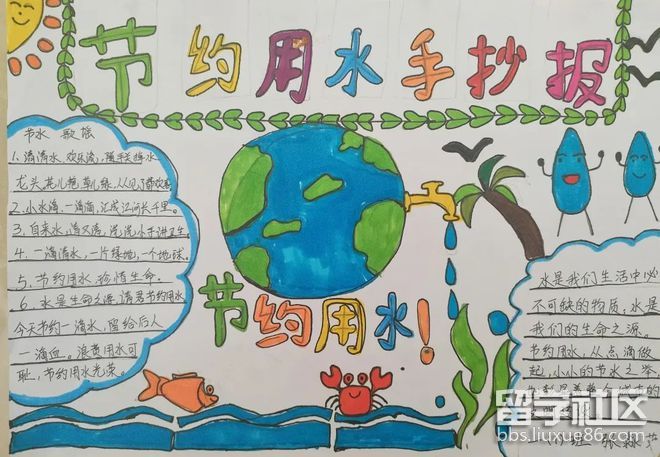 节约用水手抄报
节水 歌摇
1. 滴滴水，欢乐流，随手关掉水
龙头，花儿艳，草儿绿，
2. 小水滴，一滴滴，汇成江河长千里。
3. 自来水，滴又滴，洗洗小手讲卫生。
4. 一滴清水，一片绿地，一个地球。
5. 节约用水 珍惜生命。
6. 水是生命之源，请君节约用水
今天节约一滴水，留给后人
一滴血。浪费用水可
耻，节约用水光荣。
节约用水！
水是我们生活中必
不可缺的物质，水是
我们的生命之源
节约用水，从点滴做
起，小小的节水之举，
留学社区
bbs.liuxue86.com